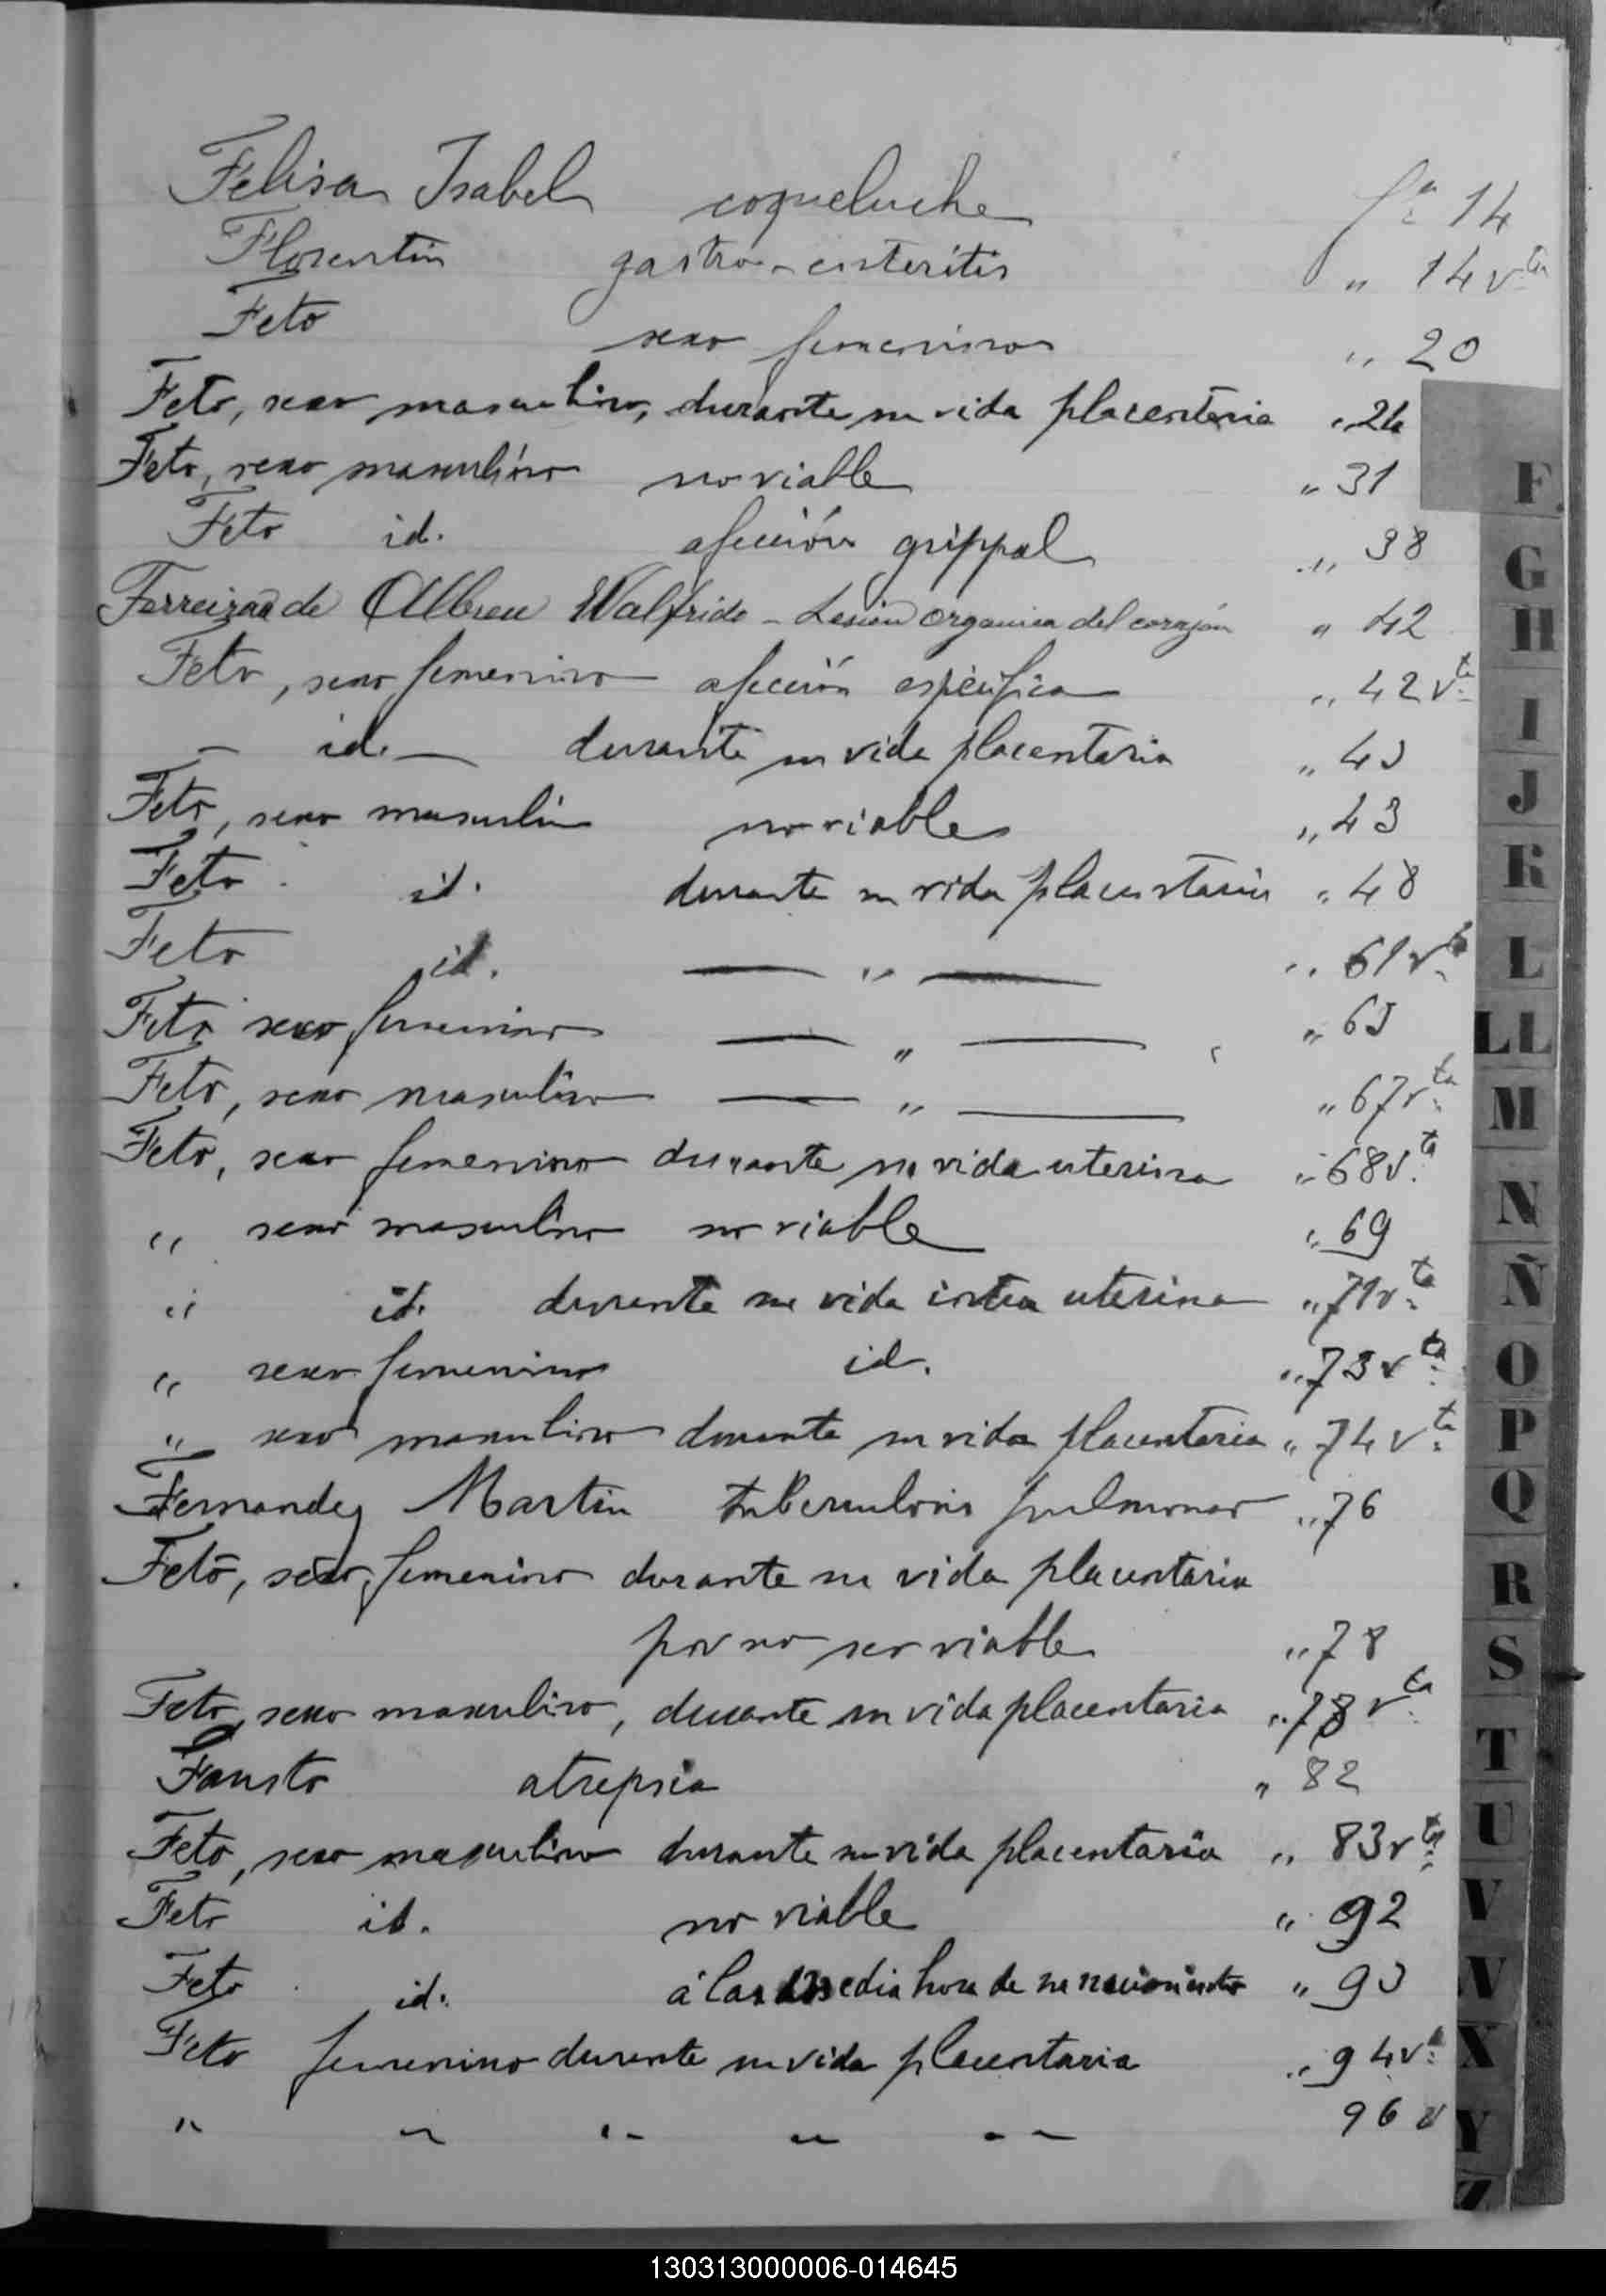 Felisa Isabel coqueluche fª 14
Florentin gastro-enteritis " 14 vta
Feto sexo femenino " 20
Feto, sexo masculino, durante su vida placentaria "
Feto, sexo masculino no viable " 31
Feto id. afección grippal " 38
de Albreu Walfrido - Lesión organica del corazón " 42
Feto, sexo femenino afección especifica " 42 vta
— id. — durante su vida placentaria "
Feto, sexo masculin no viable " 43
Feto id. durante su vida placentaria " 48
Feto id. — " — " 61 vta
Feto sexo femenino — " — "
Feto, sexo masculino — " — " 67 vta
Feto, sexo femenino durante su vida uterina " 68 vta
" sexo masculino no viable " 69
" id. durante su vida intra uterina " 71 vta
" sexo femenino id. " 73 vta
" sexo masculino durante su vida placentaria " 74 vta
Fernandez Martin tuberculosis pulmonar " 76
Feto, sexo femenino durante su vida placentaria
por no ser viable " 78
Feto, sexo masculino, durante su vida placentaria " 78 vta
Fausto atrepsia " 82
Feto, sexo masculino durante su vida placentaria " 83 vta
Feto id. no viable " 92
Feto id. á la media hora de su nacimiento "
Feto femenino durante su vida placentaria " 94 vta
" " " " " 96 v
F
G
H
I
J
K
L
LL
M
N
Ñ
O
P
Q
R
S
T
U
V
W
X
Y
Z
130313000006-014645